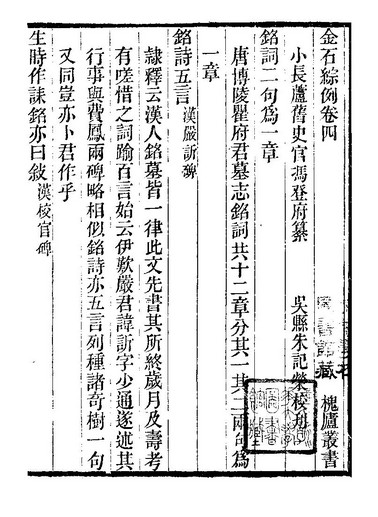 金石綜例卷四
槐廬叢書
小長蘆舊史官馮登府纂
吳縣朱記榮校刋
銘詞二句為一章
唐博陵瞿府君墓志銘詞共十二章分其一其二兩句為
一章
銘詩五言
漢嚴訢碑
隸釋云漢人銘墓皆一律此文先書其所終歲月及壽考
有嗟惜之詞踰百言始云伊歎嚴君諱訢字少通遂述其
行事與費鳳兩碑略相似銘詩亦五言列種諸奇樹一句
又同豈亦卜君作乎
生時作誄銘亦曰敍
漢校官碑